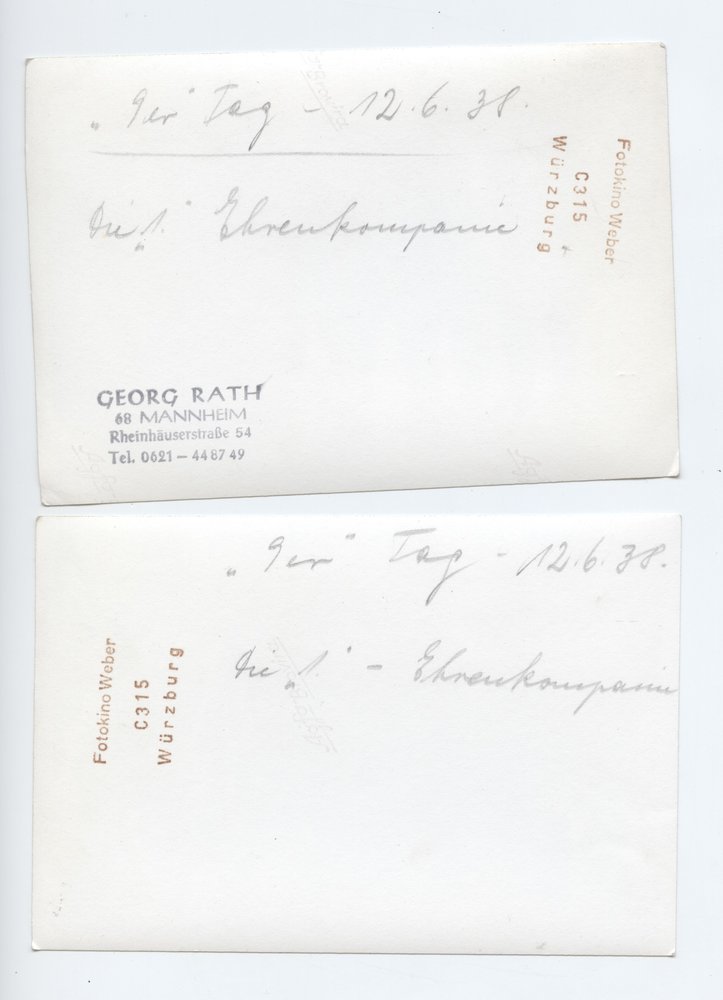 „9er“ Tag – 12.6.38.
Die „1.“ Ehrenkompanie
Fotokino Weber
C315
Würzburg
GEORG RATH
68 MANNHEIM
Rheinhäuserstraße 54
Tel. 0621 – 44 87 49
„9er“ Tag – 12.6.38.
Die „1.“ – Ehrenkompanie
Fotokino Weber
C315
Würzburg